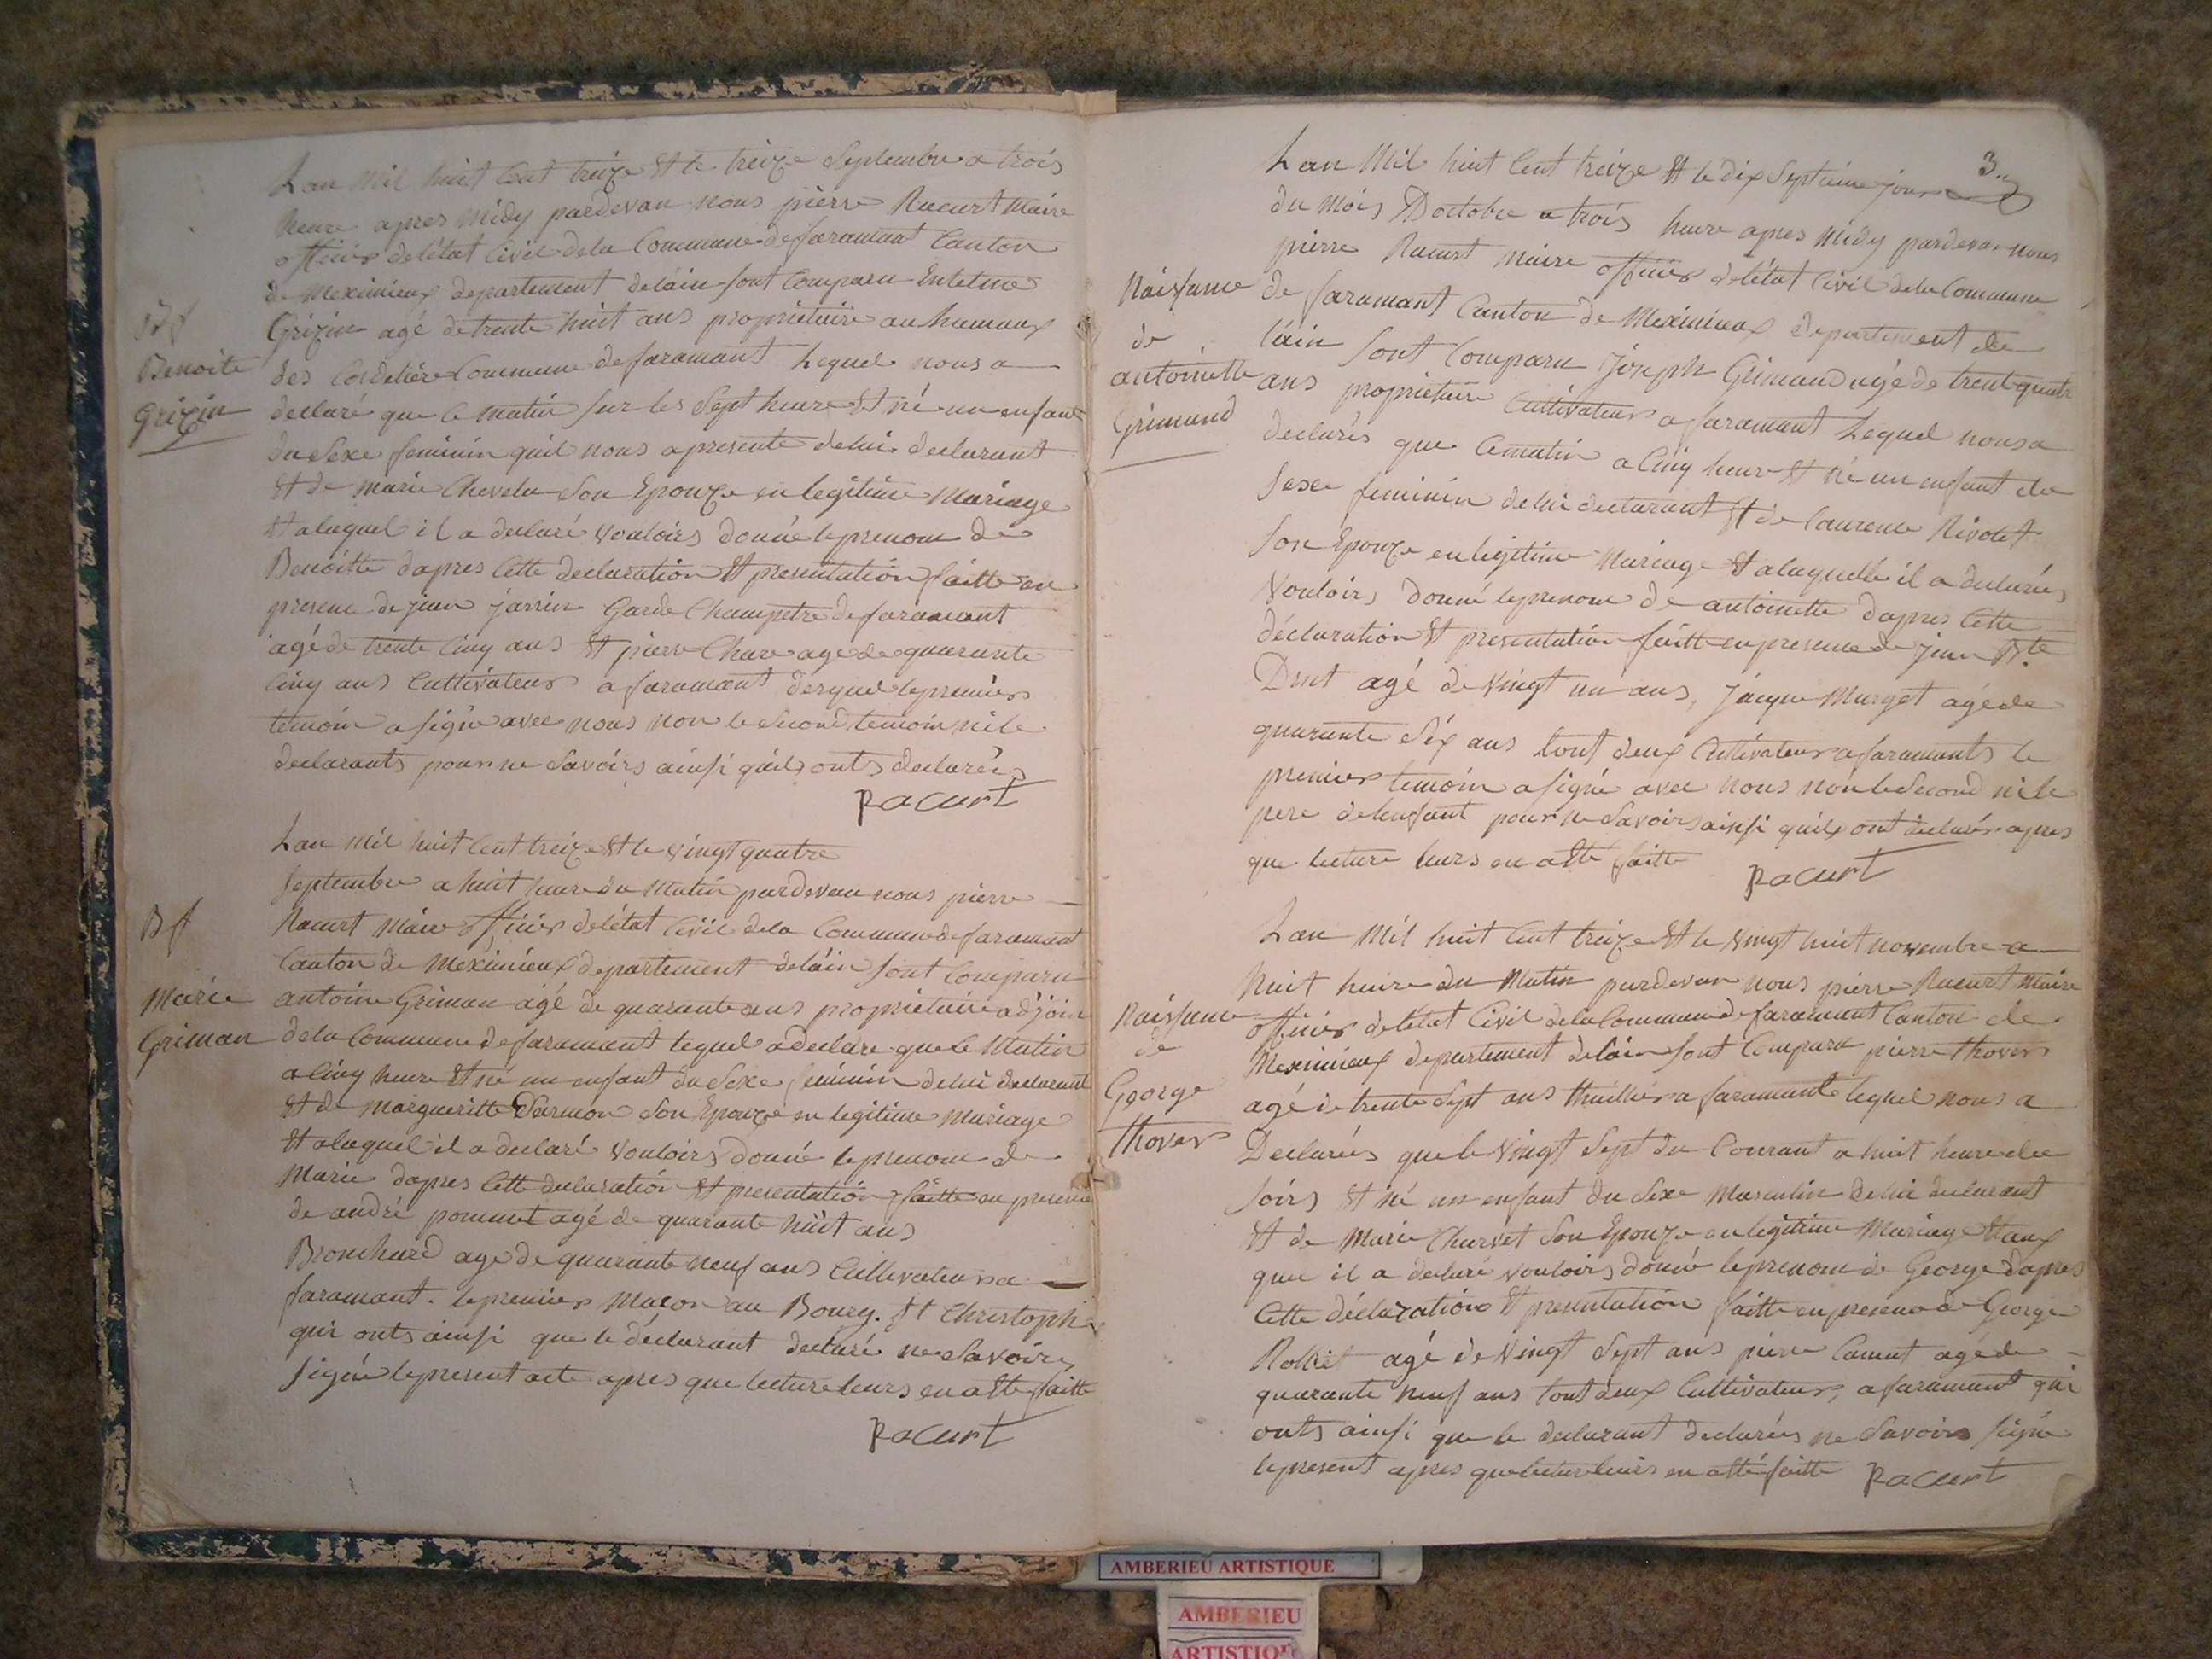 Lan mil huit Cent treize Et le treize Septembre a trois
heure apres midy pardevan nous pierre Racurt Maire
officier deletat Civil dela Commune de faramant Canton
de Meximieux departement delain sont Comparu
Grizin agé de trente huit ans propriétaire au hameaux
des Cordelière Commune de faramant Lequel nous a
declaré que le matin sur les Sept heure Et né un enfant
du Sexe feminin quil nous a presente delui declarant
Et de Marie Chevelu Son Epouze en legitime Mariage
Et aluquel il a declaré Vouloirs donné le prenom de
Benoitte dapres Cette declaration Et presentation faitte en
presence de jean jarrin Garde Champetre de faramant
agé de trente Cinq ans Et pierre Chare age de quarante
Cinq ans Cultivateur a faramant desquel le premier
temoin a signé avec nous non le Second temoin ni le
declarants pour ne Savoirs ainsi quils onts declarés
Racurt
Bf
Benoite
Grizin
Lan Mil huit Cent treize Et le vingt quatre
Septembre a huit heure du Matin pardevan nous pierre
Racurt Maire officier deletat Civil dela Commune de faramant
Canton de Meximieux departement delain sont Comparu
antoine Griman agé de quarante ans propriétaire adjoin
dela Commune de faramant lequel a declare que le Matin
a Cinq heure Et né un enfant du Sexe feminin delui declarant
Et de Margueritte Darmon Son Epouze en legitime Mariage
Et aluquel il a declaré Vouloirs donné le prenom de
Marie dapres Cette declaration Et presentation faitte en presence
de andré pommet agé de quarante huit ans
Bronchard age de quarante neuf ans Cultivateur a
faramant. le premier Macon au Bourg. St Christophe
qui onts ainsi que le déclarant declaré ne Savoirs
signé le present acte apres que lecture leurs en a Eté faitte
Racurt
Bf
Marie
Griman
3
Lan Mil huit Cent treize Et le dix Septieme jour
du mois Doctobre a trois heure apres Midy pardevan nous
pierre Racurt Maire officier deletat Civil dela Commune
de faramant Canton de Meximieux departement de
lain sont Comparu Joseph Grimaud agé de trente quatre
ans propriétaire Cultivateur a faramant Lequel nous a
declarés que le matin a Cinq heure Et né un enfant du
Sexe feminin delui declarant Et de laurence Rivolet
Son Epouze en legitime Mariage Et aluquelle il a declarés
Vouloirs donné le prenom de antoinette dapres Cette
déclaration Et presentation faitte en presence de Jean Bte
agé de Vingt un ans, Jacque Murget agé de
quarante Six ans tout deux Cultivateur a faramants le
premier temoin a signé avec nous non le Second ni le
pere delenfant pour ne Savoirs ainsi quils ont declarés apres
que lecture leurs en a Eté faitte
Racurt
Naissance
de
antoinette
Grimaud
Lan Mil huit Cent treize Et le Vingt huit novembre a
huit heure du Matin pardevan nous pierre Racurt Maire
officier deletat Civil dela Commune de faramant Canton de
Meximieux departement delain sont Comparu pierre thover
agé de trente Sept ans thuillier a faramant lequel nous a
Declarés que le Vingt Sept du Courant a huit heure du
Soirs Et né un enfant du Sexe Masculin delui declarant
Et de Marie Charvet Son Epouze en legitime Mariage Et aux
quel il a declaré vouloirs donné le prenom de George dapres
Cette déclaration Et presentation faitte en presence de George
Rollet agé de Vingt Sept ans pierre agé de
quarante neuf ans tout deux Cultivateur, a faramant qui
onts ainsi que le declarant declarés ne Savoirs signé
le present apres que lecture leurs en a Eté faitte Racurt
Naissance
de
George
thover
AMBERIEU ARTISTIQUE
AMBERIEU
ARTISTIQ